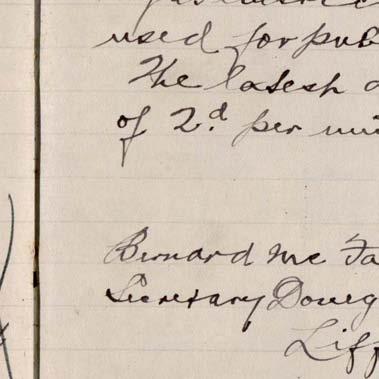 used for pub
The latest
of 2.d per
Bernard Mc Fa
Secretary Doneg
Liff